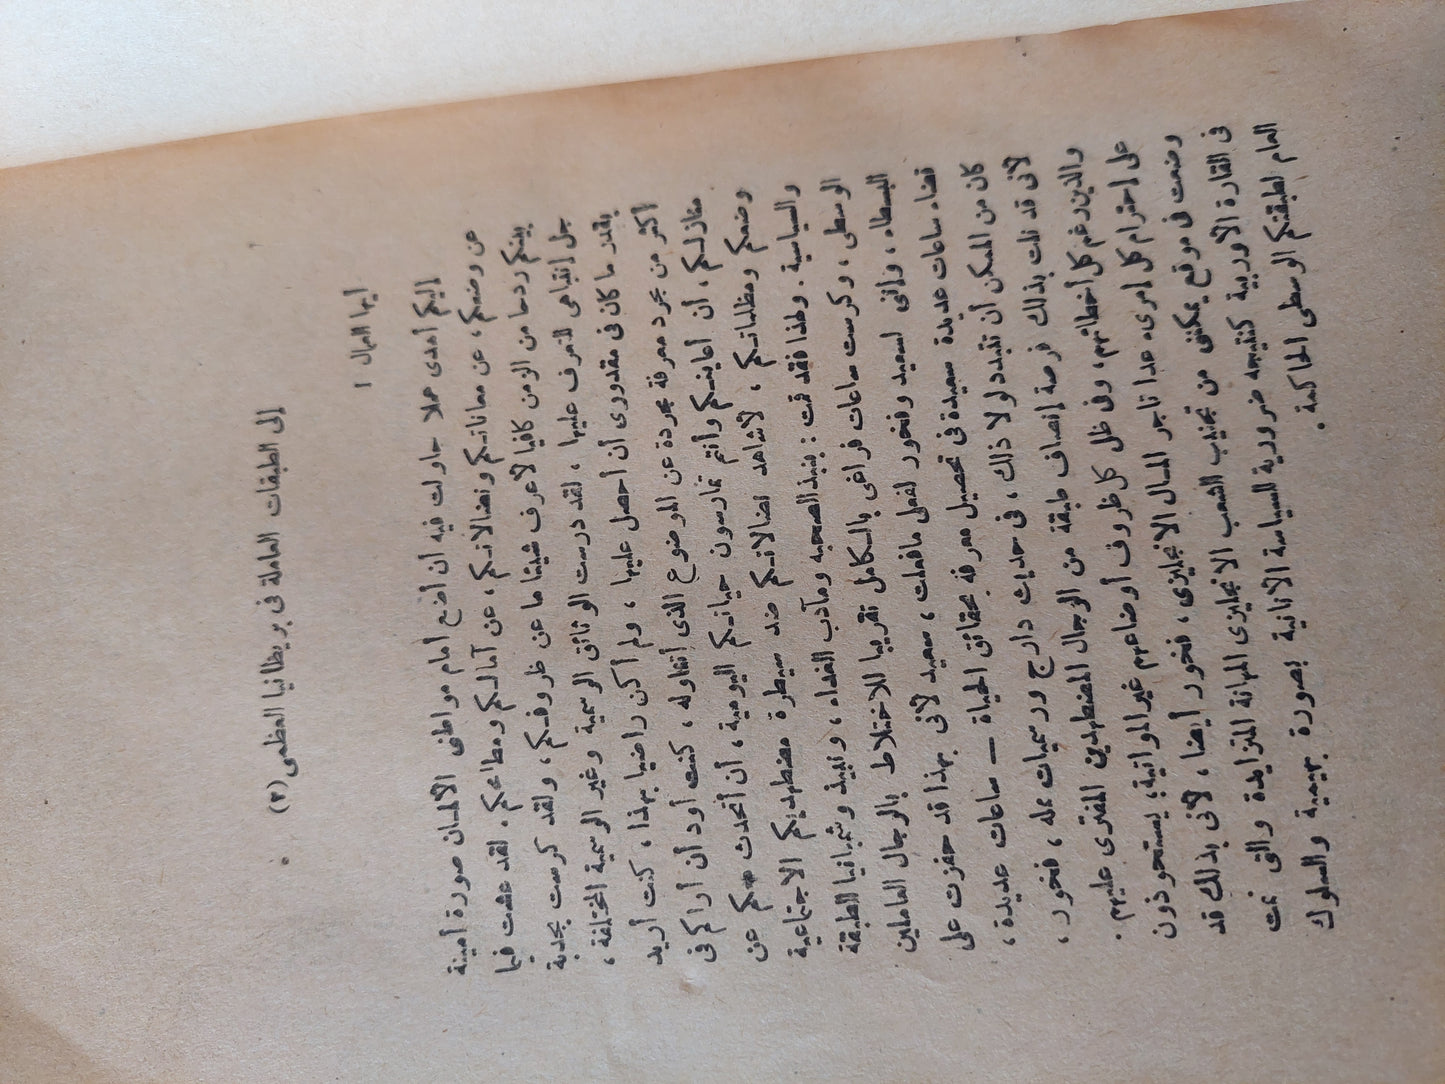 إلى الطبقات العاملة فى بريطانيا العظمى (٣) .
أيها العمال !
إليكم أهدى عملا حاولت فيه أن أضع أمام مواطنى الالمان صورة أمينة
عن وضعكم ، عن معاناتـكم ونضالاتـكم ، عن آمالـكم ومطامحكم . لقد عشت فيما
بينكم ردحا من الزمن كافيا لأعرف شيئا ما عن ظروفـكم ، ولقد كرست بجدية
جل إنتباهى للتعرف عليها ، لقد درست الوثائق الرسمية وغير الرسمية المختلفة ،
بقدر ما كان فى مقدورى أن أحصل عليها ، ولم أكن راضيا بهذا ، كنت أريد
أكثر من مجرد معرفة مجردة عن الموضوع الذى أتناوله ، كنت أود أن أراكم فى
منازلـكم ، أن أعاينـكم وأنتم تمارسون حياتـكم اليومية ، أن أتحدث معكم عن
وضعكم ومظلماتـكم ، لأشاهد نضالاتـكم ضد سيطرة مضطهديكم الاجتماعية
والسياسية . ولهذا فقد قمت : بنبذ الصحبه ومآدب الغداء ، ونبيذ وشمبانيا الطبقة
الوسطى ، وكرست ساعات فراغى بالـكامل تقريبا للاختلاط بالرجال العاملين
البسطاء ، وإنى لسعيد وفخور لفعلى مافعلت ، سعيد لأنى بهذا قد حفزت على
قضاء ساعات عديدة سعيدة فى تحصيل معرفه بحقائق الحياة — ساعات عديدة ،
كان من الممكن أن تتبدد لولا ذلك ، فى حديث دارج ورسميات مملة ، فخور ،
لأنى قد نلت بذلك فرصة إنصاف طبقة من الرجال المضطهدين المفترى عليهم .
والذين رغم كل أخطائهم ، وفى ظل كل ظروف أوضاعهم غير المواتية ؛ يستحوذون
على إحترام كل إمرىء عدا تاجر المـال الانجليزى ، فخور أيضا ، لأنى بذلك قد
وضعت فى موقع يمكننى من تجنيب الشعب الانجليزى المهانة المتزايدة والتى نمت
فى القارة الأوربية كنتيجه ضرورية للسياسة الأنانية بصورة بهيمية والسلوك
العام لطبقتكم الوسطى الحاكمة .